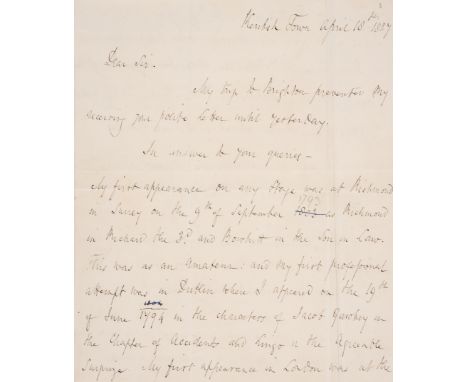 Kentish Town April 18th 1827
Dear Sir.
My trip to Brighton prevented my
receiving your polite Letter until yesterday.
In answer to your queries –
My first appearance on any stage was at Richmond
1793
in Surrey on the 9th of September as Richmond
in Richard the 3d. and Bowkitt in the Son in Law.
This was as an Amateur: and my first professional
attempt was in Dublin where I appeared on the 19th
of June 1794 in the characters of Jacob Gawkey in
the Chapter of Accidents and Lingo in the Agreeable
Surprize. My first appearance in London was at the